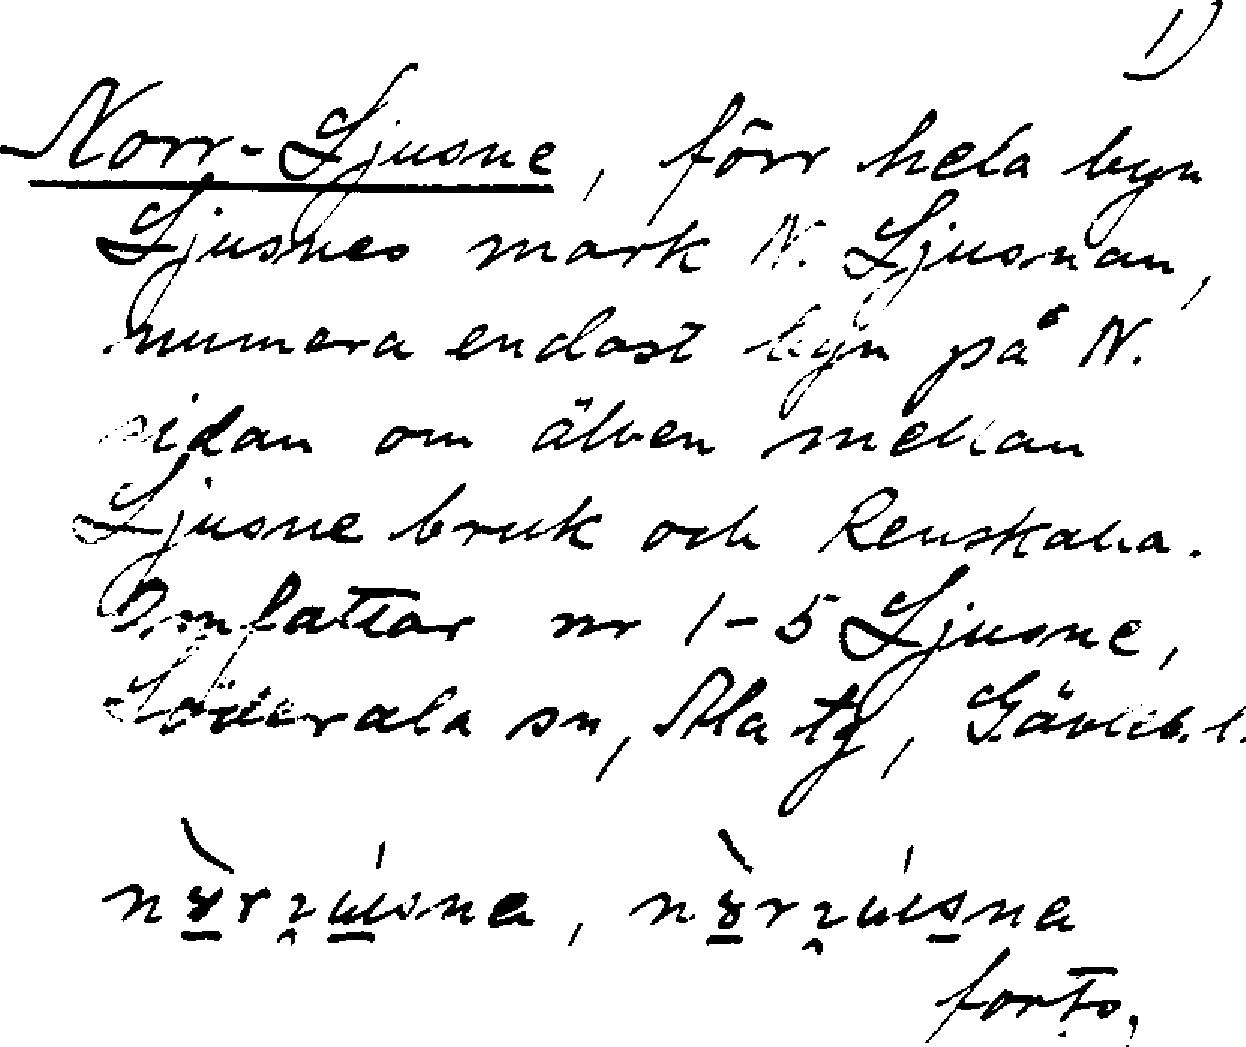 1)
Norr-Ljusne, förr hela byn
Ljusnes mark N. Ljusnan,
numera endast byn på N.
sidan om älven mellan
Ljusne bruk och Renskalla.
Omfattar nr 1-5 Ljusne,
Söderala sn, Ala tg, Gävleb. l.
forts.